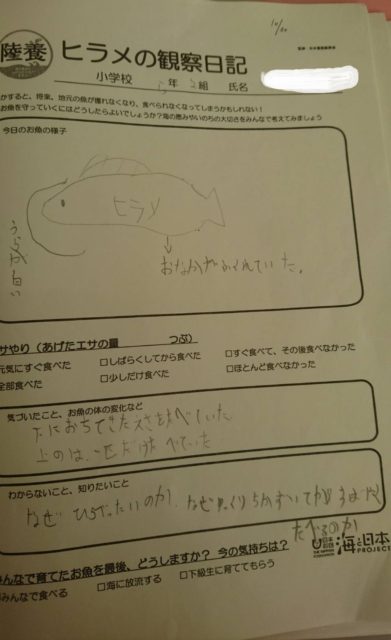 陸養
ヒラメの観察日記
小学校 5年 組 氏名
かすると、将来、地元の魚が獲れなくなり、食べられなくなってしまうかもしれない！
お魚を守っていくにはどうしたらよいでしょうか？海の恵みやいのちの大切さをみんなで考えてみましょう
今日のお魚の様子
ヒラメ
うらが白い
おなかがふくれていた。
サやり（あげたエサの量 つぶ）
元気にすぐ食べた □しばらくしてから食べた □すぐ食べて、その後食べなかった
全部食べた □少しだけ食べた □ほとんど食べなかった
気づいたこと、お魚の体の変化など
下におちてきたエサを食べていた
上のは、一匹だけたべていた
わからないこと、知りたいこと
なぜ ひらべったいのか、なぜ
たべるのか
みんなで育てたお魚を最後、どうしますか？ 今の気持ちは？
みんなで食べる □海に放流する □下級生に育ててもらう
日本財団
THE NIPPON FOUNDATION
海と日本
PROJECT